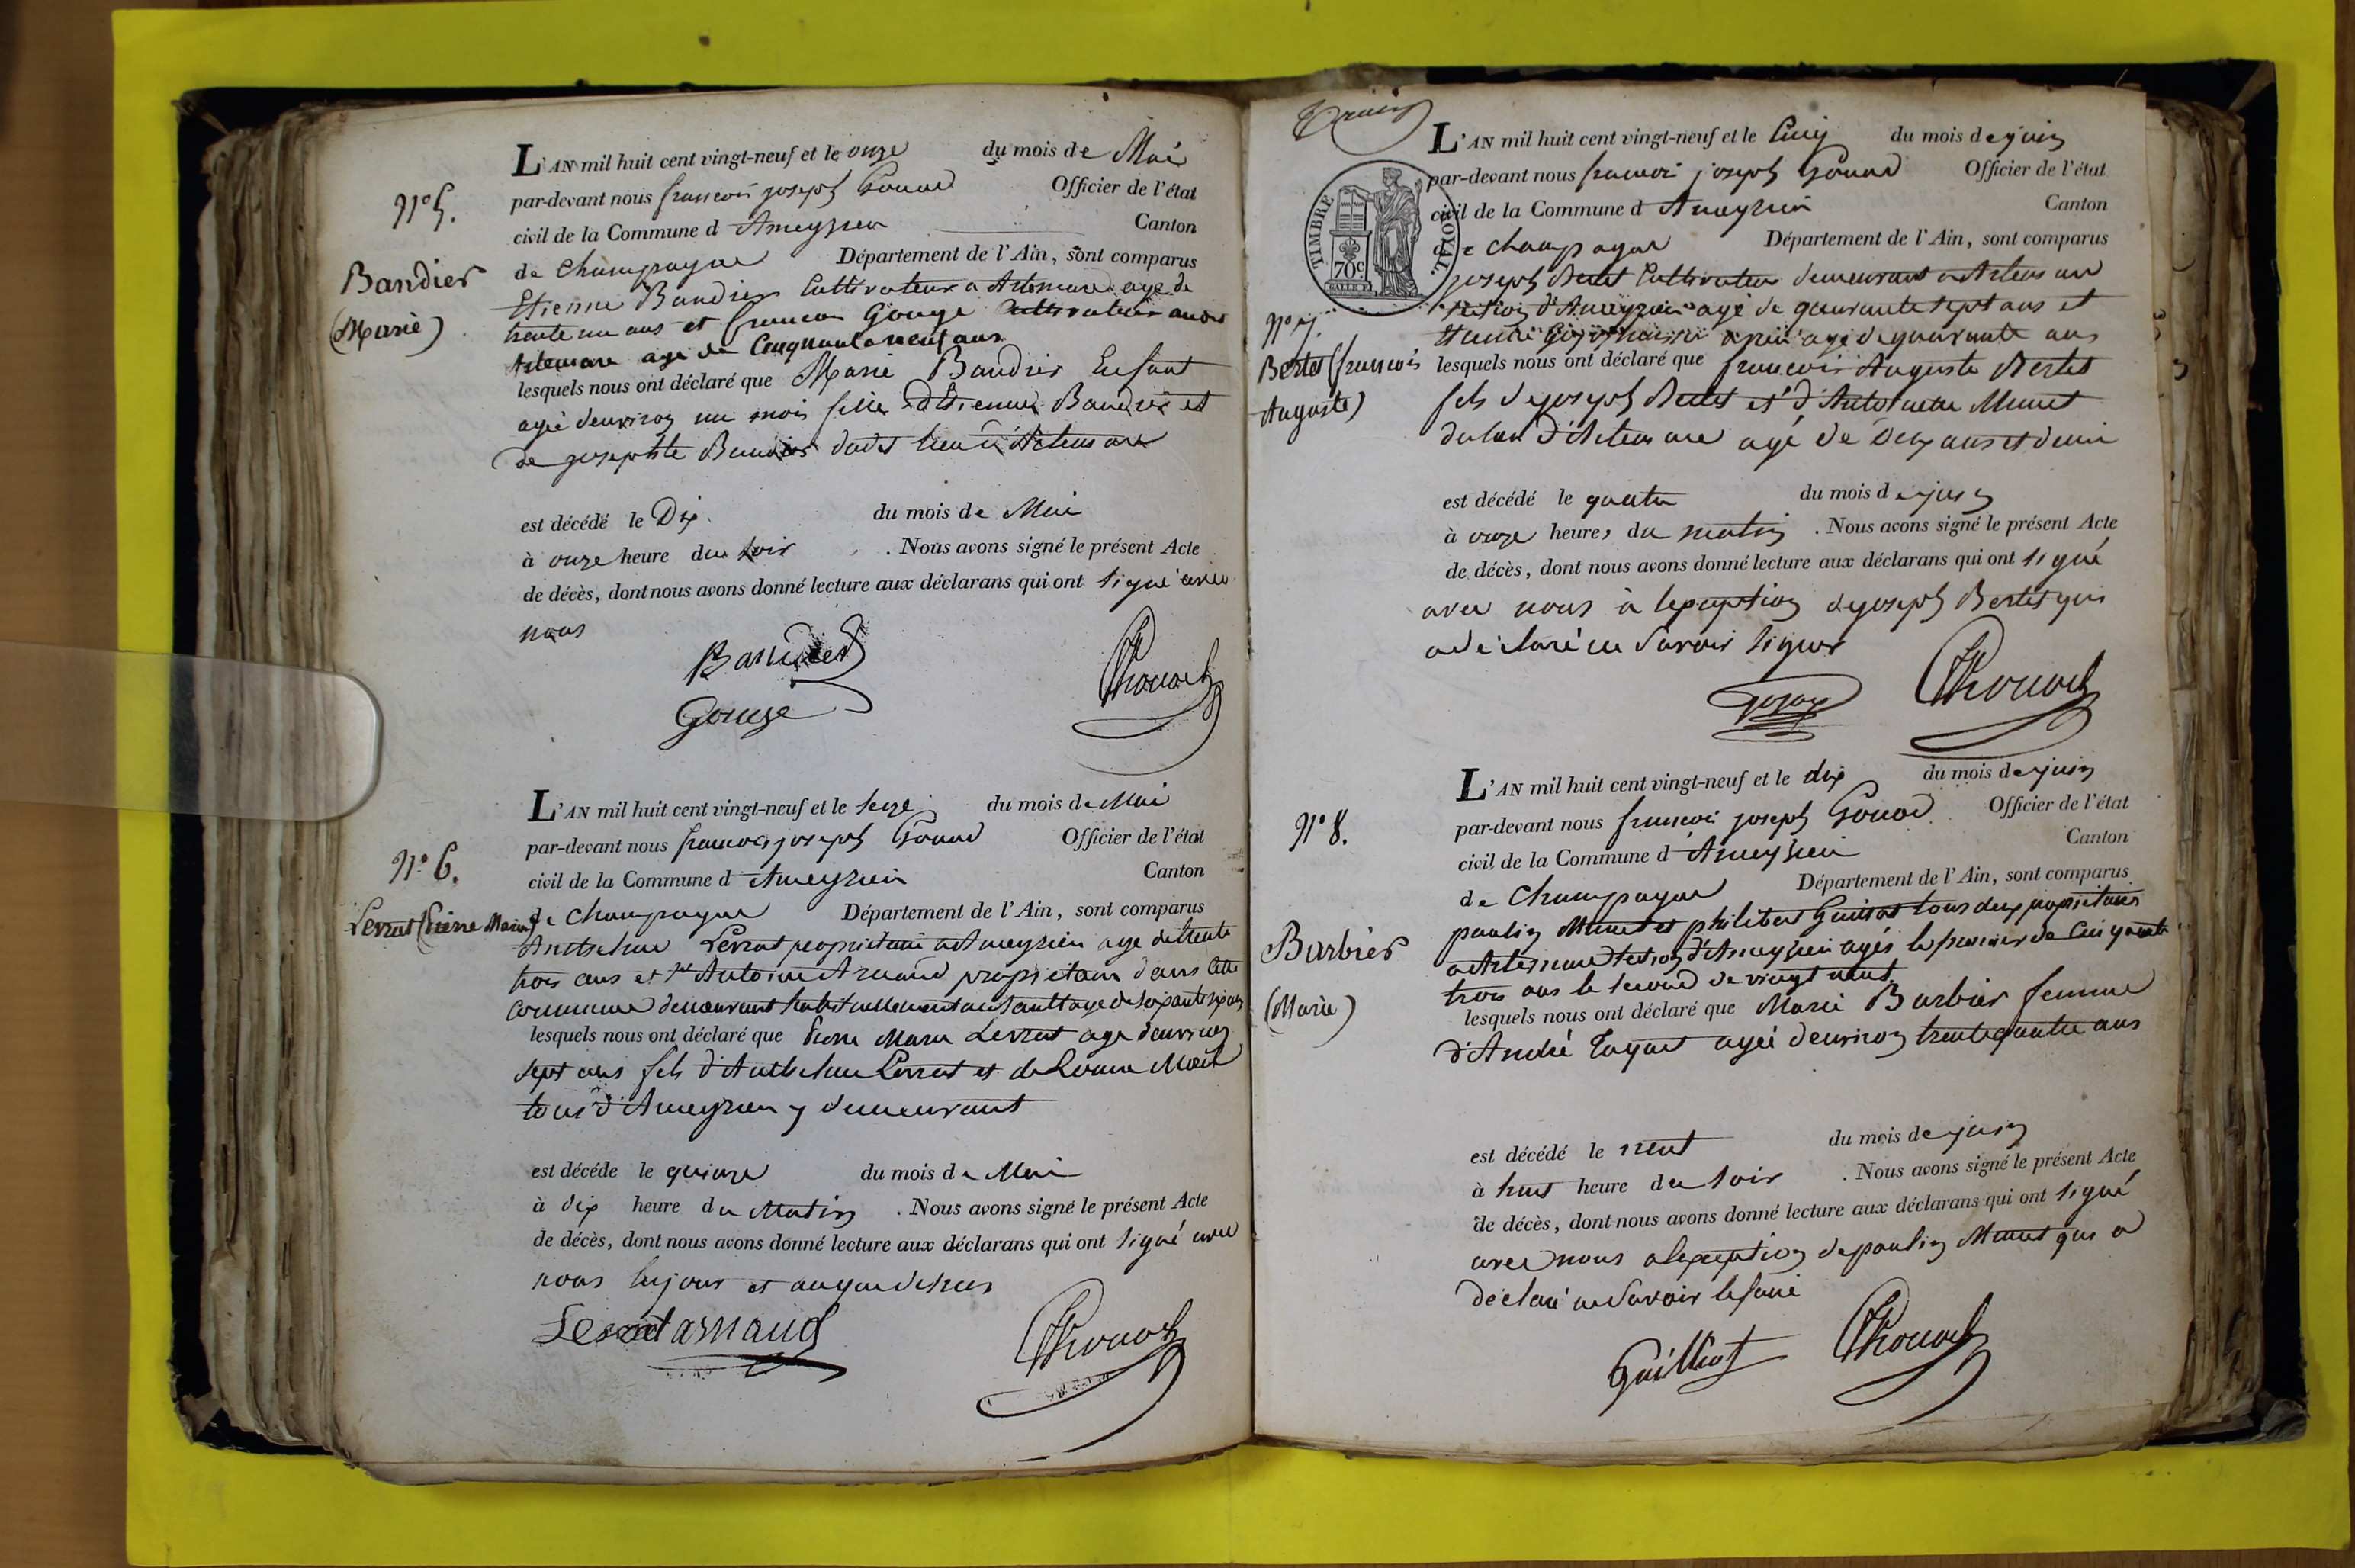 N° 5.
Bandier
(Marie)
L'AN mil huit cent vingt-neuf et le onze du mois de Mai
par-devant nous francois joseph Gonard Officier de l'état
civil de la Commune d Ameyzieu Canton
de Champagne Département de l'Ain, sont comparus
Etienne Bandier Cultivateur a Artemare age de
trente un ans et francois Gouge Cultivateur audit
Artemare age de Cinquante neuf ans
lesquels nous ont déclaré que Marie Bandier Enfant
agée denviron un mois fille d'Etienne Bandier et
de josephte Bandier dudit lieu d'Artemare
est décédé le Dix du mois de Mai
à onze heure du soir . Nous avons signé le présent Acte
de décès, dont nous avons donné lecture aux déclarans qui ont signé avec
nous
Bandier
Gouge
N° 6.
Levrat (Pierre Marie)
L'AN mil huit cent vingt-neuf et le seize du mois de Mai
par-devant nous francois joseph Gonard Officier de l'état
civil de la Commune d Ameyzieu Canton
de Champagne Département de l'Ain, sont comparus
Anthelme Levrat proprietaire a Ameyzieu age de trente
trois ans et Sr Antoine Arnaud proprietaire dans Cette
Commune demeurant habituellement au age de soixante six ans
lesquels nous ont déclaré que Pierre Marie Levrat age denviron
sept ans fils d'Anthelme Levrat et de Louise
tous d'Ameyzieu y demeurant
est décéde le quinze du mois de Mai
à dix heure du Matin . Nous avons signé le présent Acte
de décès, dont nous avons donné lecture aux déclarans qui ont signé avec
nous les jour et an que dessus
Levrat arnaud
TIMBRE ROYAL
70c
N° 7.
Bertet (francois
Auguste)
L'AN mil huit cent vingt-neuf et le Cinq du mois de juin
par-devant nous francois joseph Gonard Officier de l'état
civil de la Commune d Ameyzieu Canton
de champagne Département de l'Ain, sont comparus
joseph Bertet Cultivateur demeurant a Artemare
section d'Ameyzieu agé de quarante sept ans et
Etienne agé de quarante ans
lesquels nous ont déclaré que francois Auguste Bertet
fils de joseph Bertet et d'Antoinette Munet
du lieu d'Artemare agé de deux ans et demi
est décédé le quatre du mois de juin
à onze heures du matin . Nous avons signé le présent Acte
de décès, dont nous avons donné lecture aux déclarans qui ont signé
avec nous à lexception de joseph Bertet qui
a déclaré ne Savoir signer
N° 8.
Barbier
(Marie)
L'AN mil huit cent vingt-neuf et le dix du mois de juin
par-devant nous francois joseph Gonard Officier de l'état
civil de la Commune d Ameyzieu Canton
de Champagne Département de l'Ain, sont comparus
paulin Munet et philibert Guillot tous deux proprietaires
a Artemare section d'Ameyzieu agés le premier de Cinquante
trois ans le second de vingt neuf
lesquels nous ont déclaré que Marie Barbier femme
d'André agée denviron trente quatre ans
est décédé le neuf du mois de juin
à huit heure du soir . Nous avons signé le présent Acte
de décès, dont nous avons donné lecture aux déclarans qui ont signé
avec nous a lexception de paulin Munet qui a
déclaré ne Savoir le faire
Guilliot